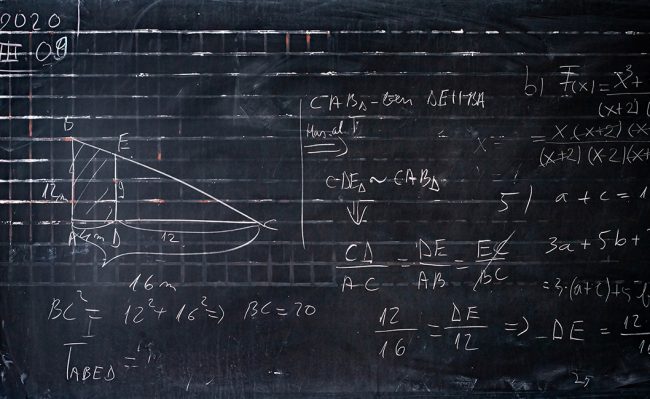 2020
III 09
B
E
12m
9
A 4m D 12 C
16m
BC² = 12² + 16² => BC = 20
T ABED =
CABΔ - DE II BA
CDEΔ ~ CABΔ
⇓
CΔ/AC = ΔE/AB = EC/BC
12/16 = ΔE/12 => ΔE = 12
b) F(x) = X³ +
(x+2)
X = = X (x+2) (x
(x+2) (x-2)(x+
5) a + c = 1
3a + 5b +
= 3·(a+c)+5
25